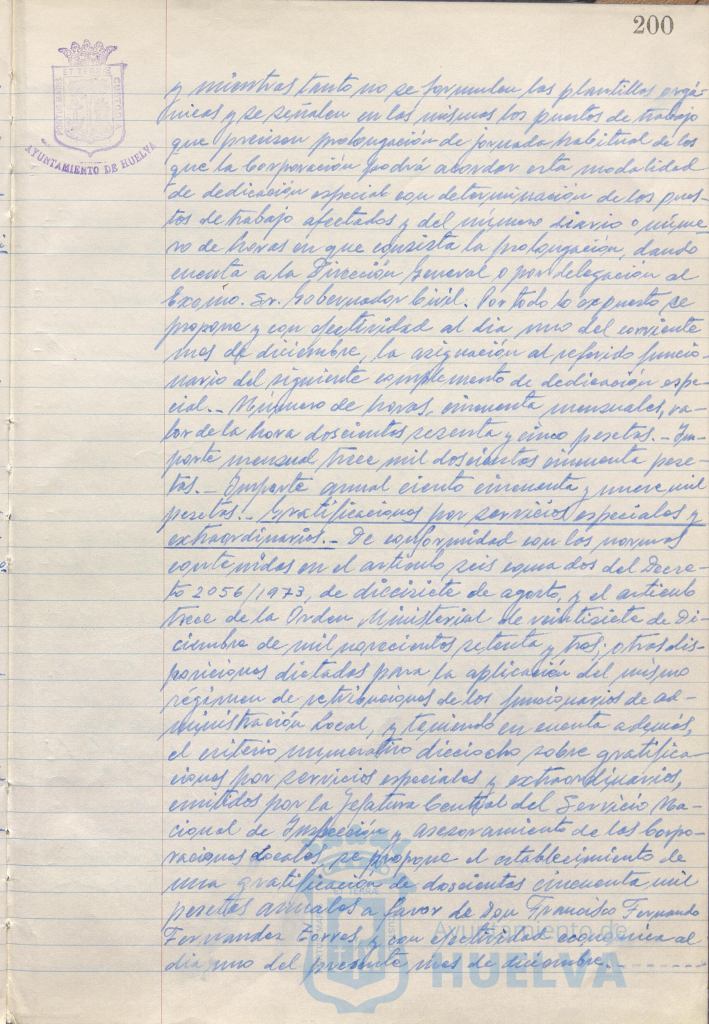 200
AYUNTAMIENTO DE HUELVA
y mientras tanto no se formulen las plantillas orgá-
nicas y se señalen en las mismas los puestos de trabajo
que precisen prolongación de jornada habitual de los
que la Corporación podrá acordar esta modalidad
de dedicación especial con determinación de los pues-
tos de trabajo afectados y del número diario o núme-
ro de horas en que consista la prolongación, dando
cuenta a la Dirección General o por delegación al
Excmo. Sr. Gobernador Civil. Por todo lo expuesto se
propone y con efectividad al dia uno del corriente
mes de diciembre, la asignación al referido funcio-
nario del siguiente complemento de dedicación espe-
cial.- Número de horas, cincuenta mensuales, va-
lor de la hora doscientas sesenta y cinco pesetas.- Im-
porte mensual, trece mil doscientas cincuenta pese-
tas.- Importe anual ciento cincuenta y nueve mil
pesetas.- Gratificaciones por servicios especiales y
extraordinarios.- De conformidad con las normas
contenidas en el artículo seis coma dos del Decre-
to 2056/1973, de diecisiete de agosto, y el artículo
trece de la Orden Ministerial de veintisiete de Di-
ciembre de mil novecientos setenta y tres, otras dis-
posiciones dictadas para la aplicación del mismo
régimen de retribuciones de los funcionarios de ad-
ministración Local, y teniendo en cuenta además,
el criterio numerativo dieciocho sobre gratifica-
ciones por servicios especiales y extraordinarios,
emitidos por la Jefatura Central del Servicio Na-
cional de Inspección y asesoramiento de las Corpo-
raciones Locales, se propone el establecimiento de
una gratificación de doscientas cincuenta mil
pesetas anuales a favor de Don Francisco Fernando
Fernandez Torres y con efectividad económica al
dia uno del presente mes de diciembre.-
Ayuntamiento de
HUELVA